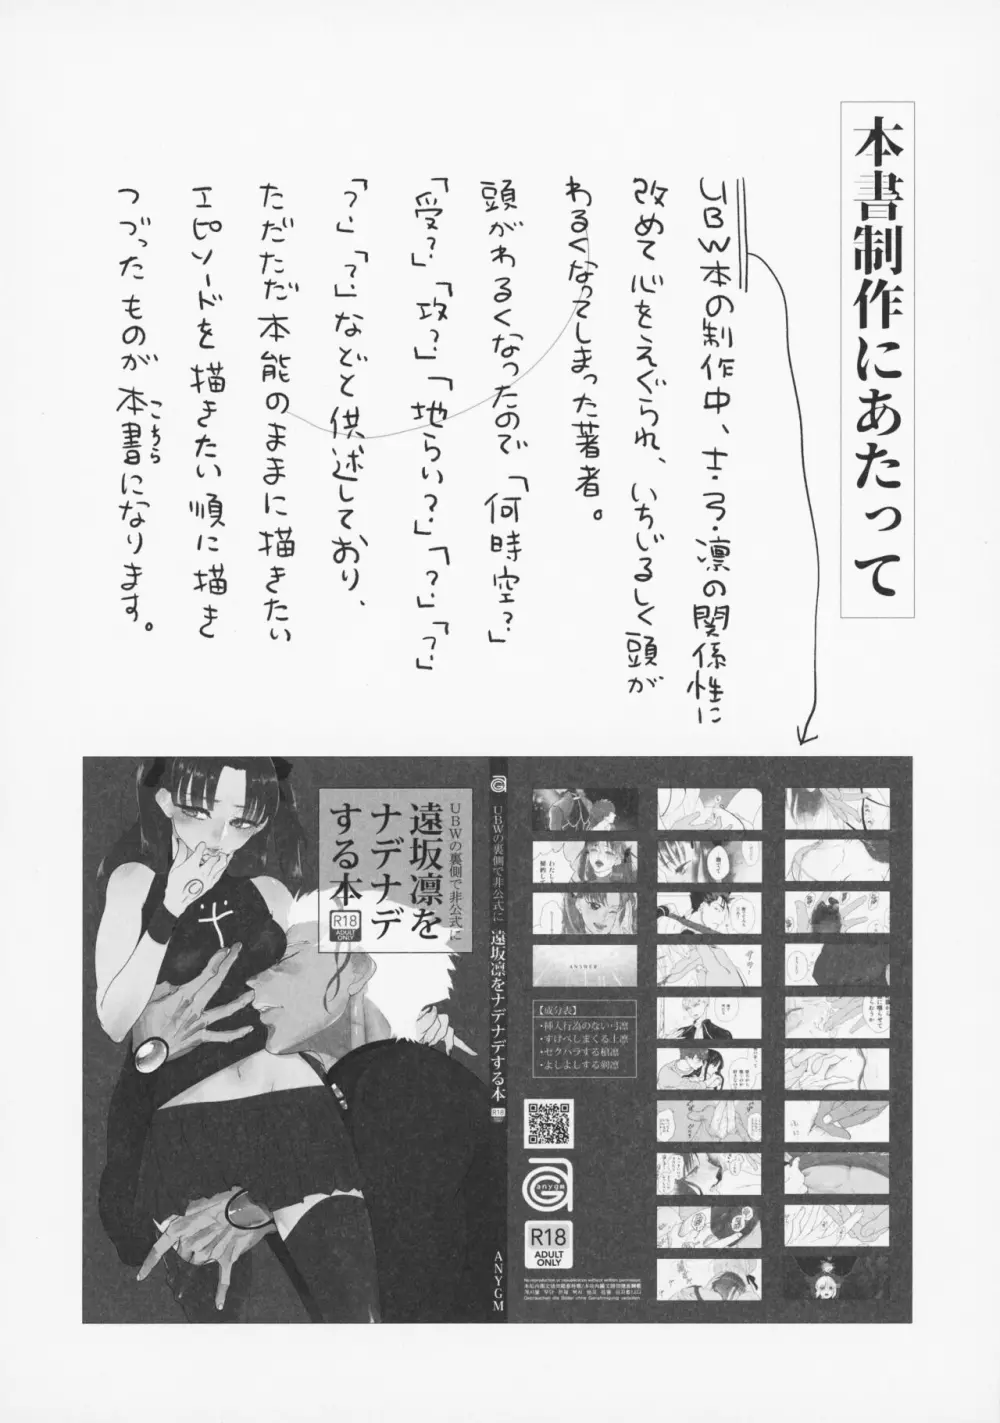 本書制作にあたって
UBW本の制作中、士・弓・凛の関係性に
改めて心をえぐられ、いちじるしく頭が
わるくなってしまった著者。
頭がわるくなったので「何時空？」
「受？」「攻？」「地らい？」「？」「？」
「？」「？」などと供述しており、
ただただ本能のままに描きたい
エピソードを描きたい順に描き
つづったものが本書になります。
こちら
UBWの裏側で非公式に
遠坂凛を
ナデナデ
する本
R18
ADULT
ONLY
UBWの裏側で非公式に 遠坂凛をナデナデする本
R18
ANYGM
ANSWER
【成分表】
・挿入行為のない弓凛
・すけべしまくる士凛
・セクハラする槍凛
・よしよしする剣凛
anygm
R18
ADULT
ONLY
No reproduction or republication without written permission.